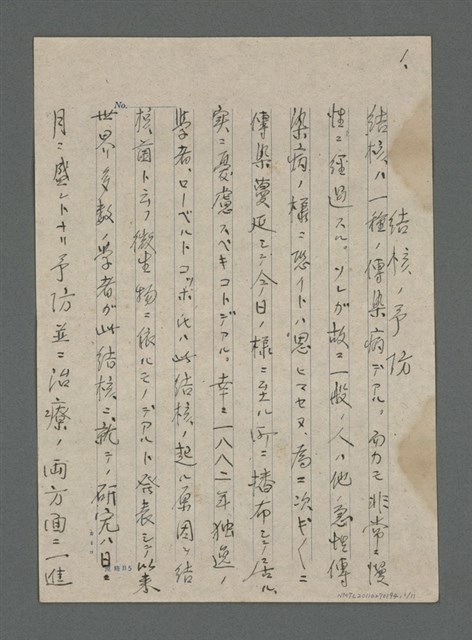 結核ノ予防
結核ハ一種ノ傳染病デアル。而カモ非常ニ慢
性ニ經過スル。ソレガ故ニ一般ノ人ハ他ノ急性傳
染病ノ様ニ恐イトハ思ヒマセヌ、為ニ次ギ〱ニ
傳染蔓延シテ今日ノ様ニ至ル所ニ播布シテ居ル、
実ニ憂慮スベキコトデアル。幸ニ一八八二年独逸ノ
学者、ローベルトコッホ氏ハ此結核ノ起ル原因ヲ結
核菌ト云フ微生物ニ依ルモノデアルト発表シテ以来
世界多数ノ学者ガ此結核ニ就テノ研究ハ日ニ
月ニ盛ントナリ予防並ニ治療ノ両方面ニ進
No.